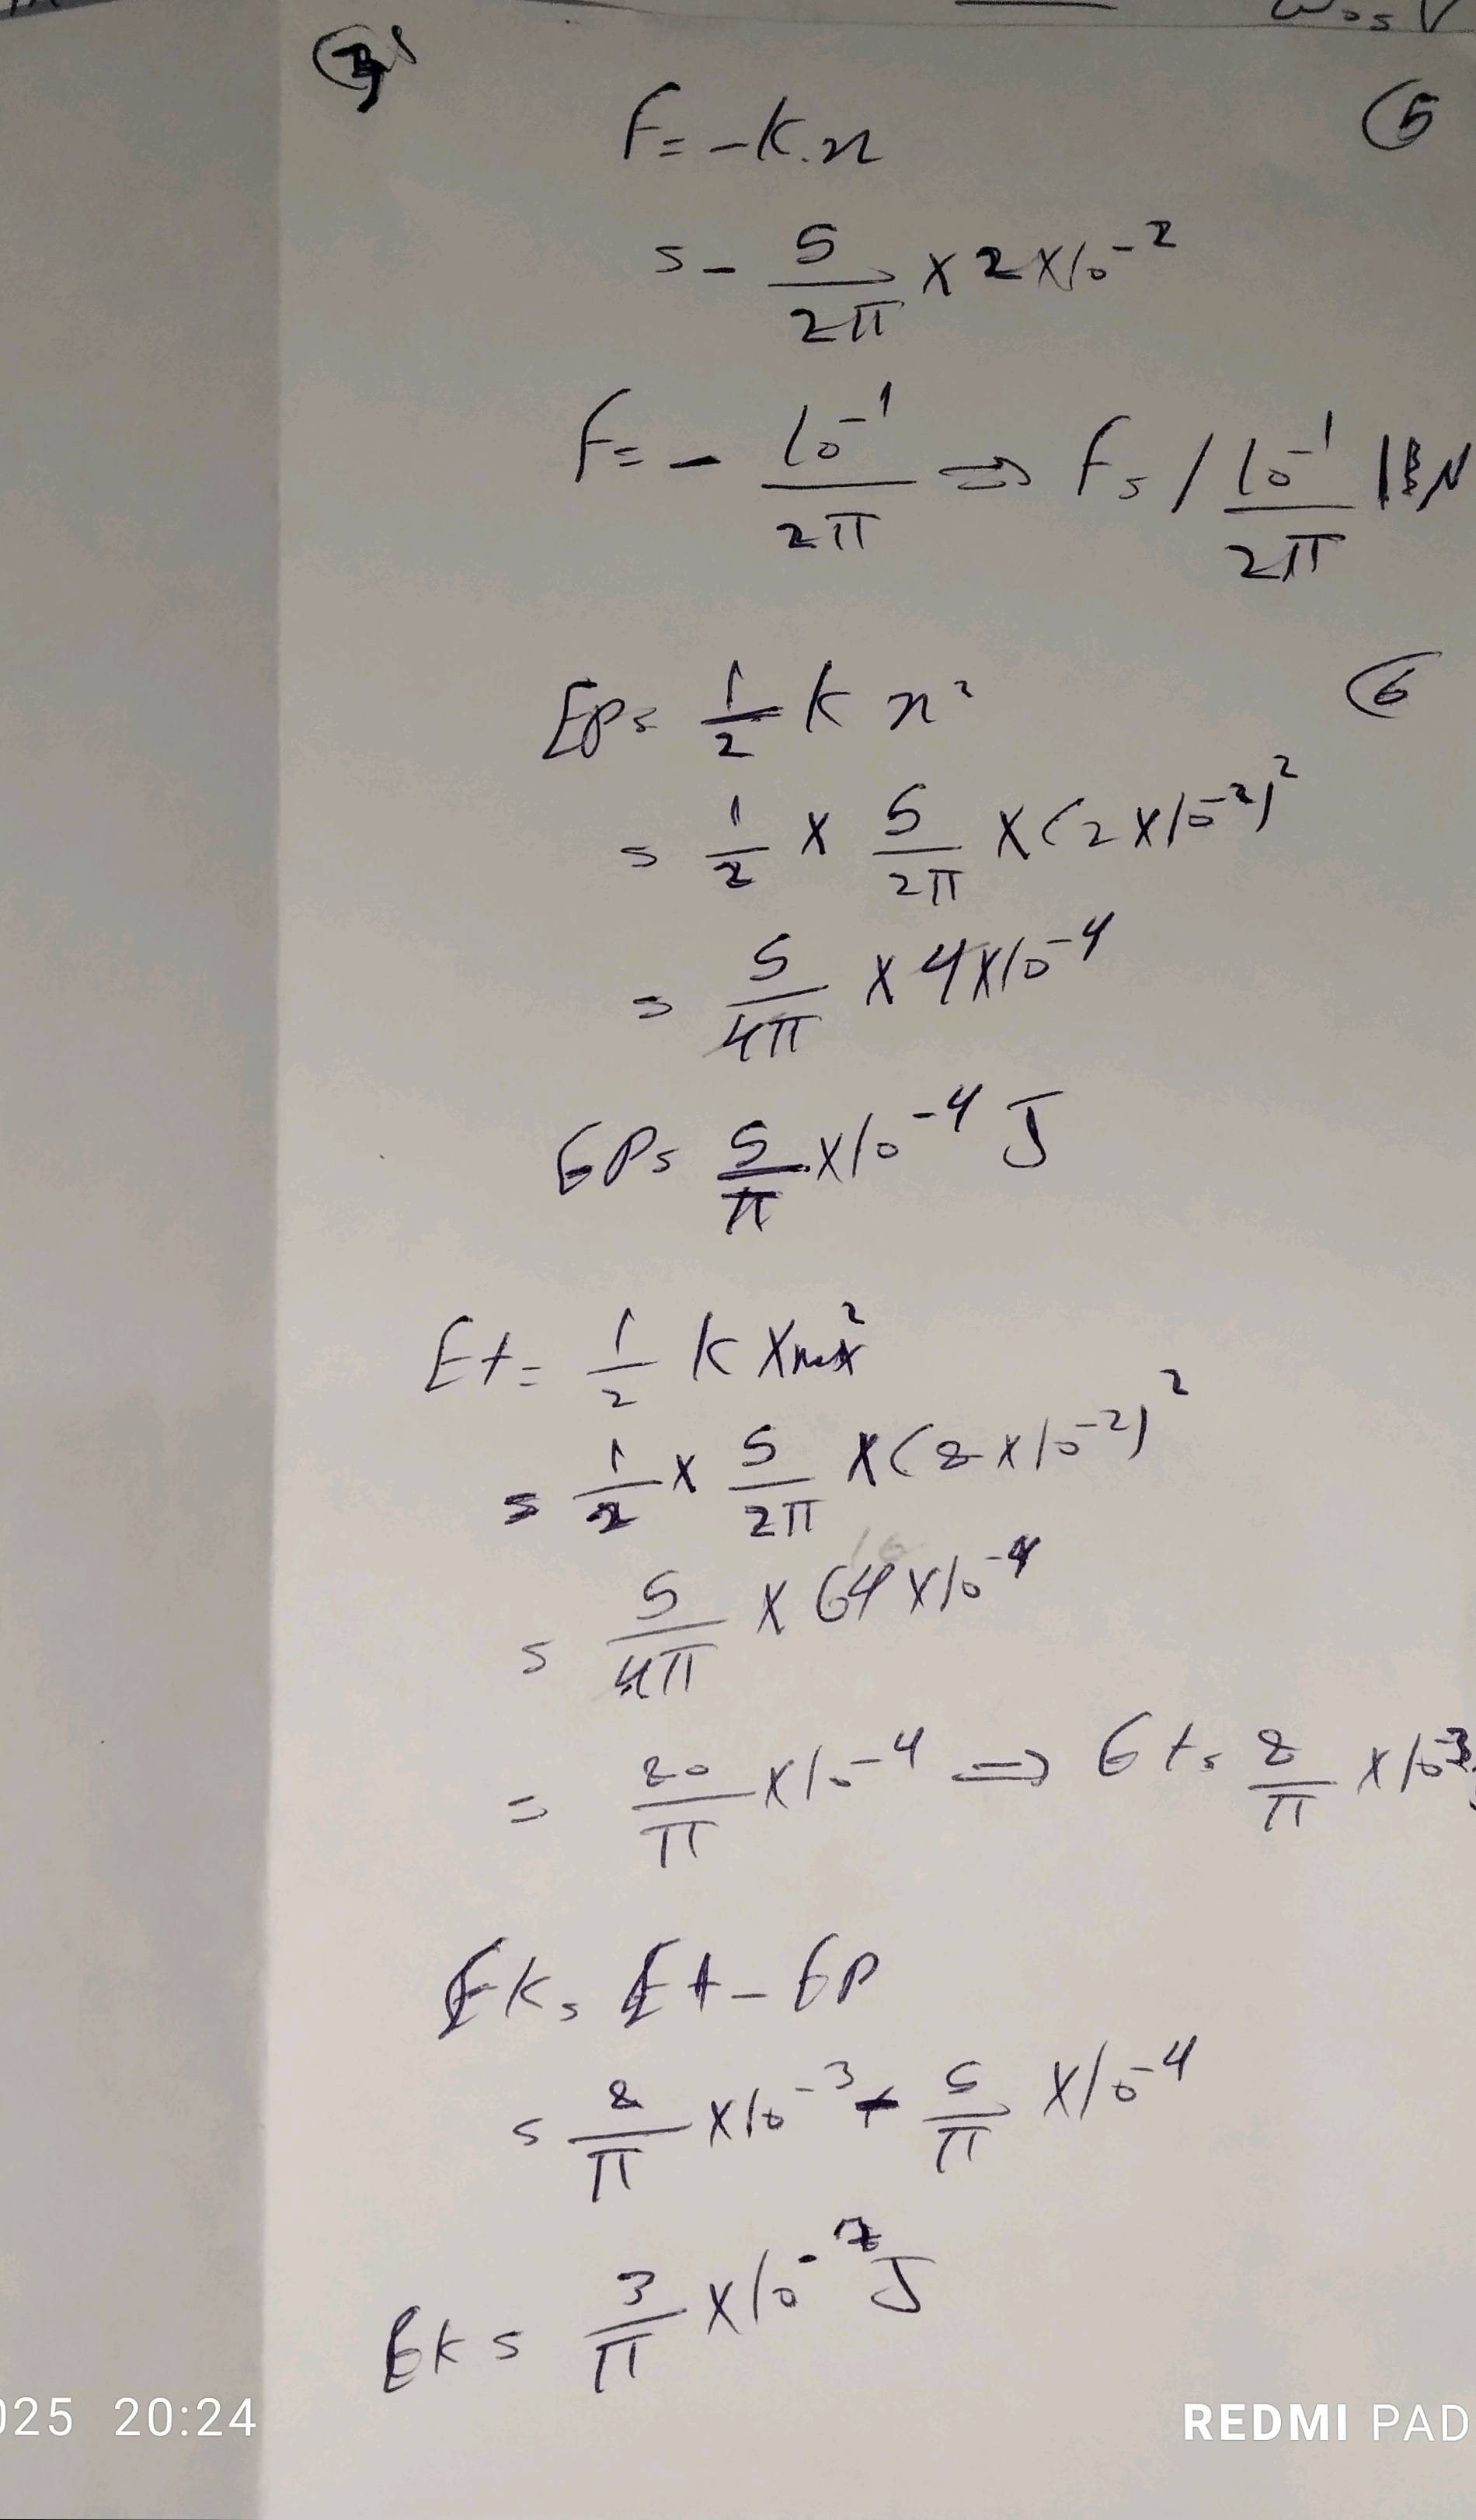 F = -K.x
(5)
= - 5/2π × 2 × 10⁻²
F = - 10⁻¹/2π ⇒ F = / 10⁻¹/2π | N
Ep = 1/2 K x²
(6)
= 1/2 × 5/2π × (2 × 10⁻²)²
= 5/4π × 4 × 10⁻⁴
Ep = 5/π × 10⁻⁴ J
Et = 1/2 K Xmax²
= 1/2 × 5/2π × (8 × 10⁻²)²
= 5/4π × 64 × 10⁻⁴
= 80/π × 10⁻⁴ ⇒ Et = 8/π × 10⁻³
Ek = Et - Ep
= 8/π × 10⁻³ - 5/π × 10⁻⁴
Ek = 3/π × 10⁻ J
025 20:24
REDMI PAD